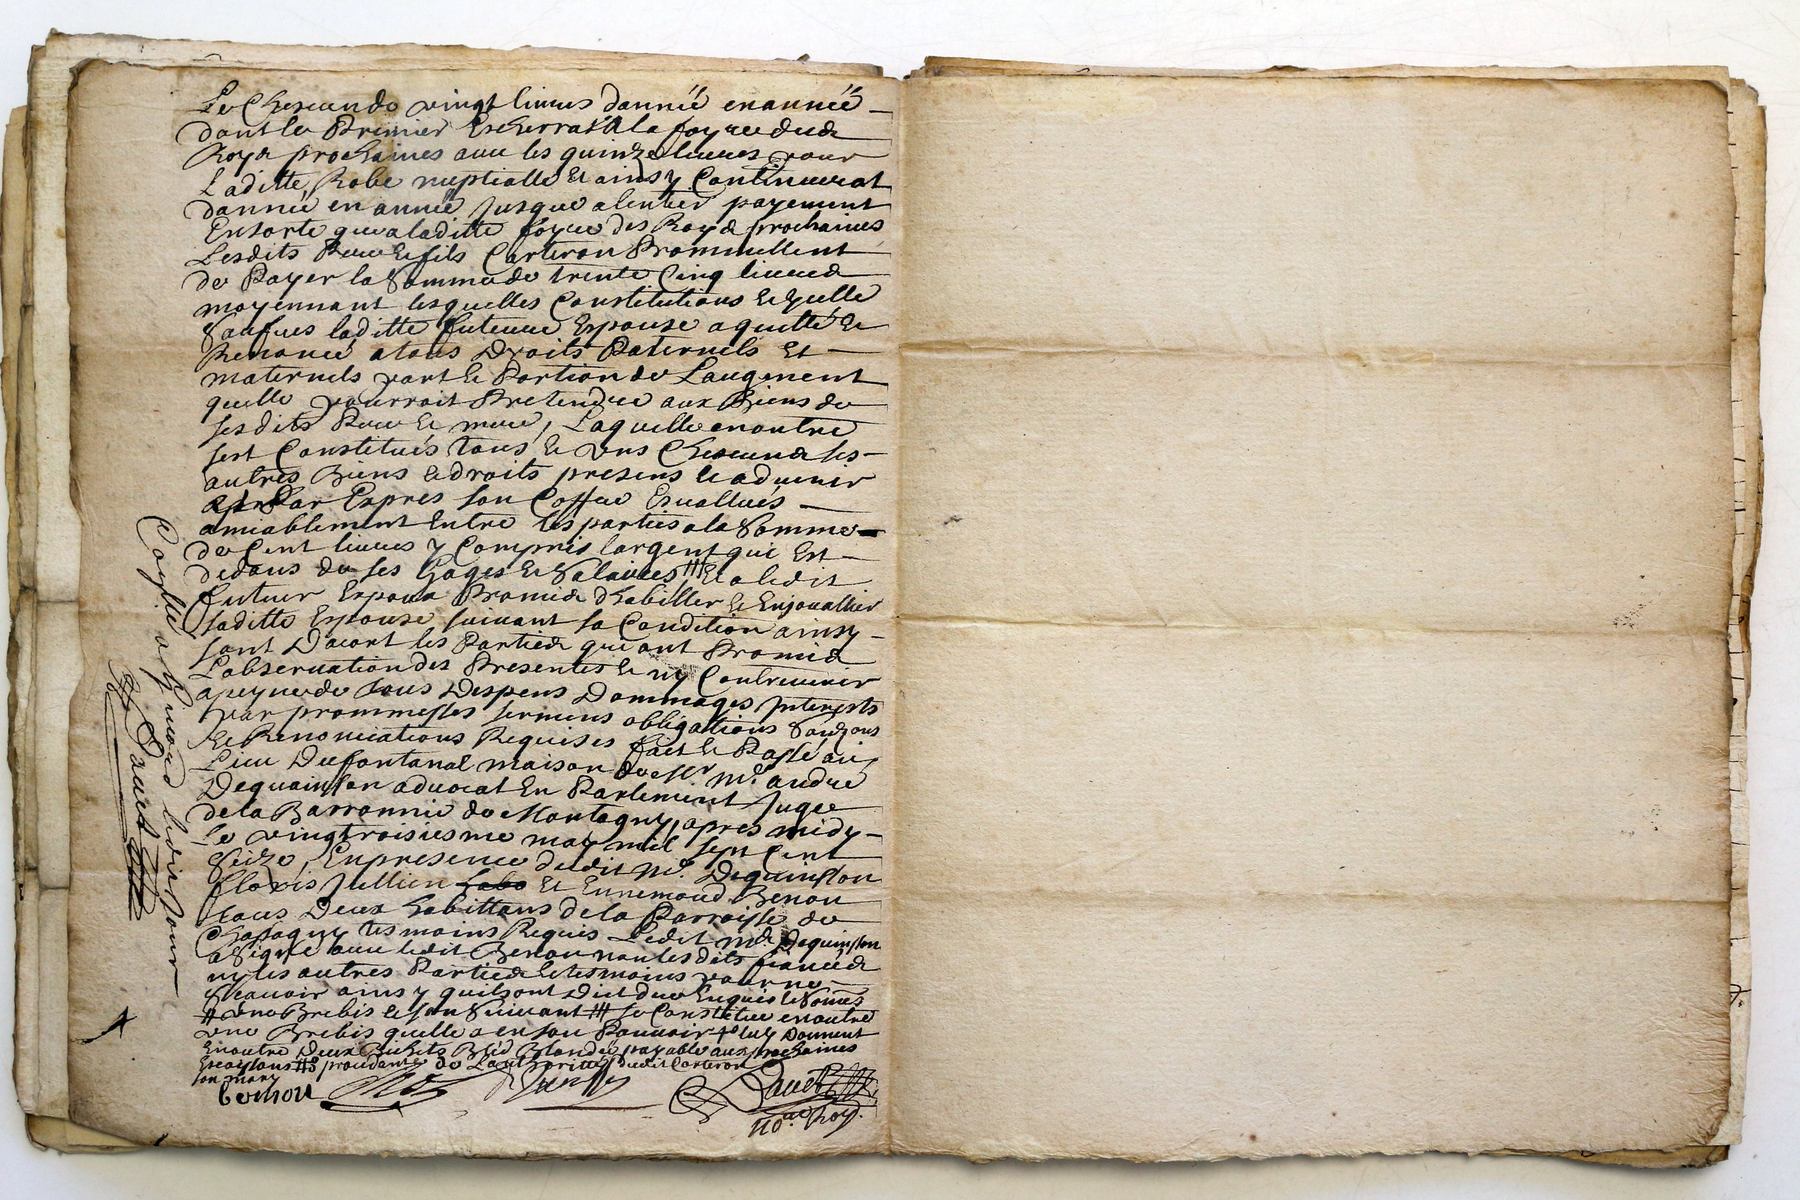 De Chescundo vingt livres dannéé en annéé
dont le Premier Escherrat A la foyre des
Roys prochaines avec les quinze livres pour
Laditte Robe nuptialle et ainsy Continuerat
dannéé en annéé Jusque a lentier payement
Ensorte que a laditte foyre des Roys prochaines
Lesdits Pere Et fils Carteron Prommettent
de Payer la Somme de trente Cinq livres
moyennant lesquelles Constitutions Et
laditte future Espouse a quitté Et
Renoncé a tous Droits Paternels Et
maternels part Et Portion de Laugment
quelle pourroit Pretendre aux Biens de
ses dits Pere Et mere, Laquelle en outre
sest Constitués tous Et uns Chescuns ses
autres Biens Et droits presens Et advenir
Par Expres son Coffre Esvallués
amiablement Entre les parties a la Somme
de Cent livres y Compris largent qui Est
dedans de ses Gages Et Salaires # Et a ledit
futur Espoux Promis dhabiller Et Enjouallier
saditte Espouse suivant sa Condition ainsy
sont Dacort les Parties qui ont Promis
Lobservation des Presentes Et ny Contrevenir
a peyne de tous Despens Dommages Interests
par prommesses sermens obligations
Et Renonciations Requises fait Et Passé au
Lieu Du fontanal maison de Sr mr andré
Dequainson advocat En Parlement Juge
de la Barronnie de Montagny, apres midy
Le vingtroisiesme may mil sept Cent
Seize, En presence dudit mr Dequinson
Jullien Et Ennemond Benou
tous Deux habittans de la Parroisse de
Chassagny tesmoins Requis Ledit mr Dequinson
a Signé avec ledit Benou non lesdits fiancés
ny les autres Parties Et tesmoins pour ne
Scavoir ainsy quils ont Dict de ce Enquis
# une Brebis Et son Suivant # se Constitue en outre
une Brebis quelle a en son Pouvoir luy Donnent
En outre Deux Bichets Bléd payable aux prochaines
de Lauthoritté dudit Carteron
son mary
benou
no.re Roy.